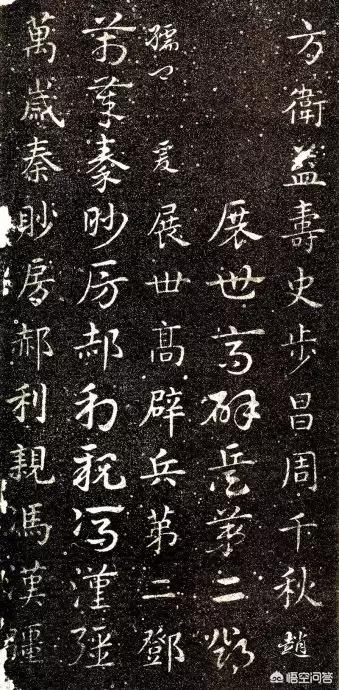 方衛益壽史步昌周千秋趙
展世高辟兵第二鄧
孺卿爰展世高辟兵第二鄧
萬歲秦眇房郝利親馮漢彊
萬歲秦眇房郝利親馮漢彊
悟空问答